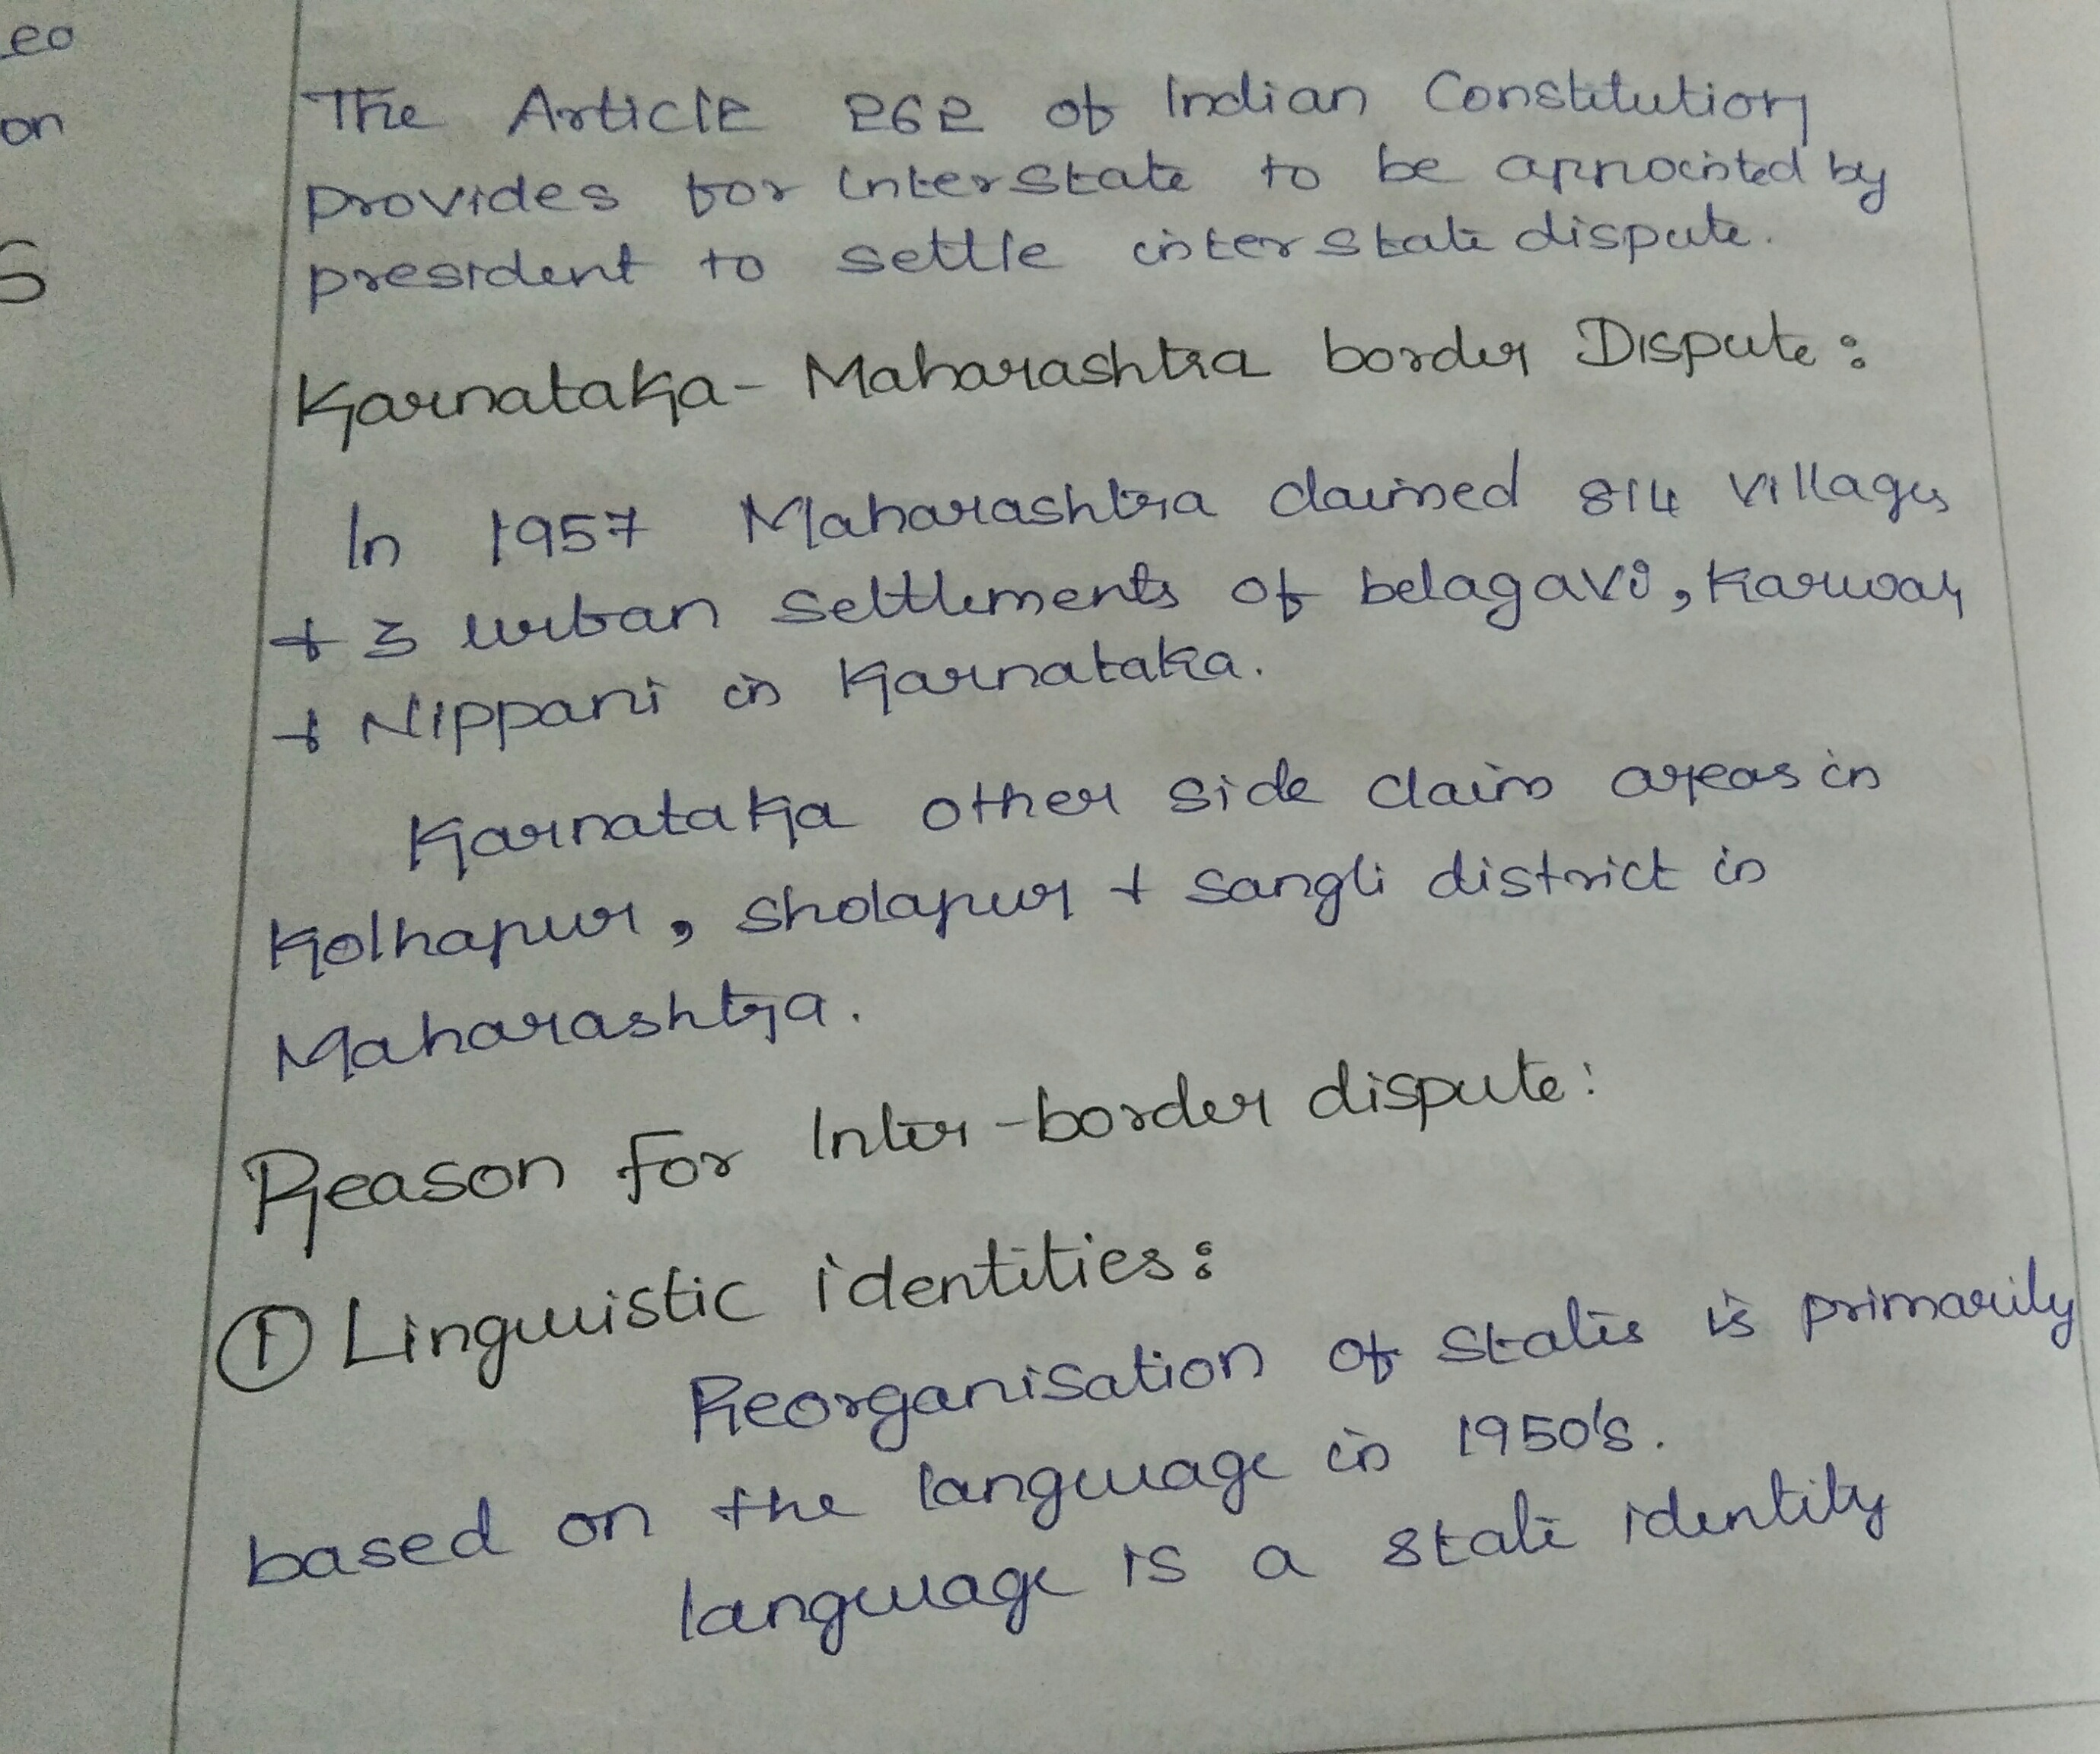 eo
on
S
The Article 262 of Indian Constitution
provides for interstate to be appointed by
president to settle interstate dispute.
Karnataka - Maharashtra border Dispute:
In 1957 Maharashtra claimed 814 villages
+ 3 urban settlements of belagavi, Karwar
+ Nippani in Karnataka.
Karnataka other side claim areas in
Kolhapur, Sholapur + Sangli district in
Maharashtra.
Reason for Inter-border dispute:
① Linguistic identities:
Reorganisation of states is primarily
based on the language in 1950's.
language is a state identity